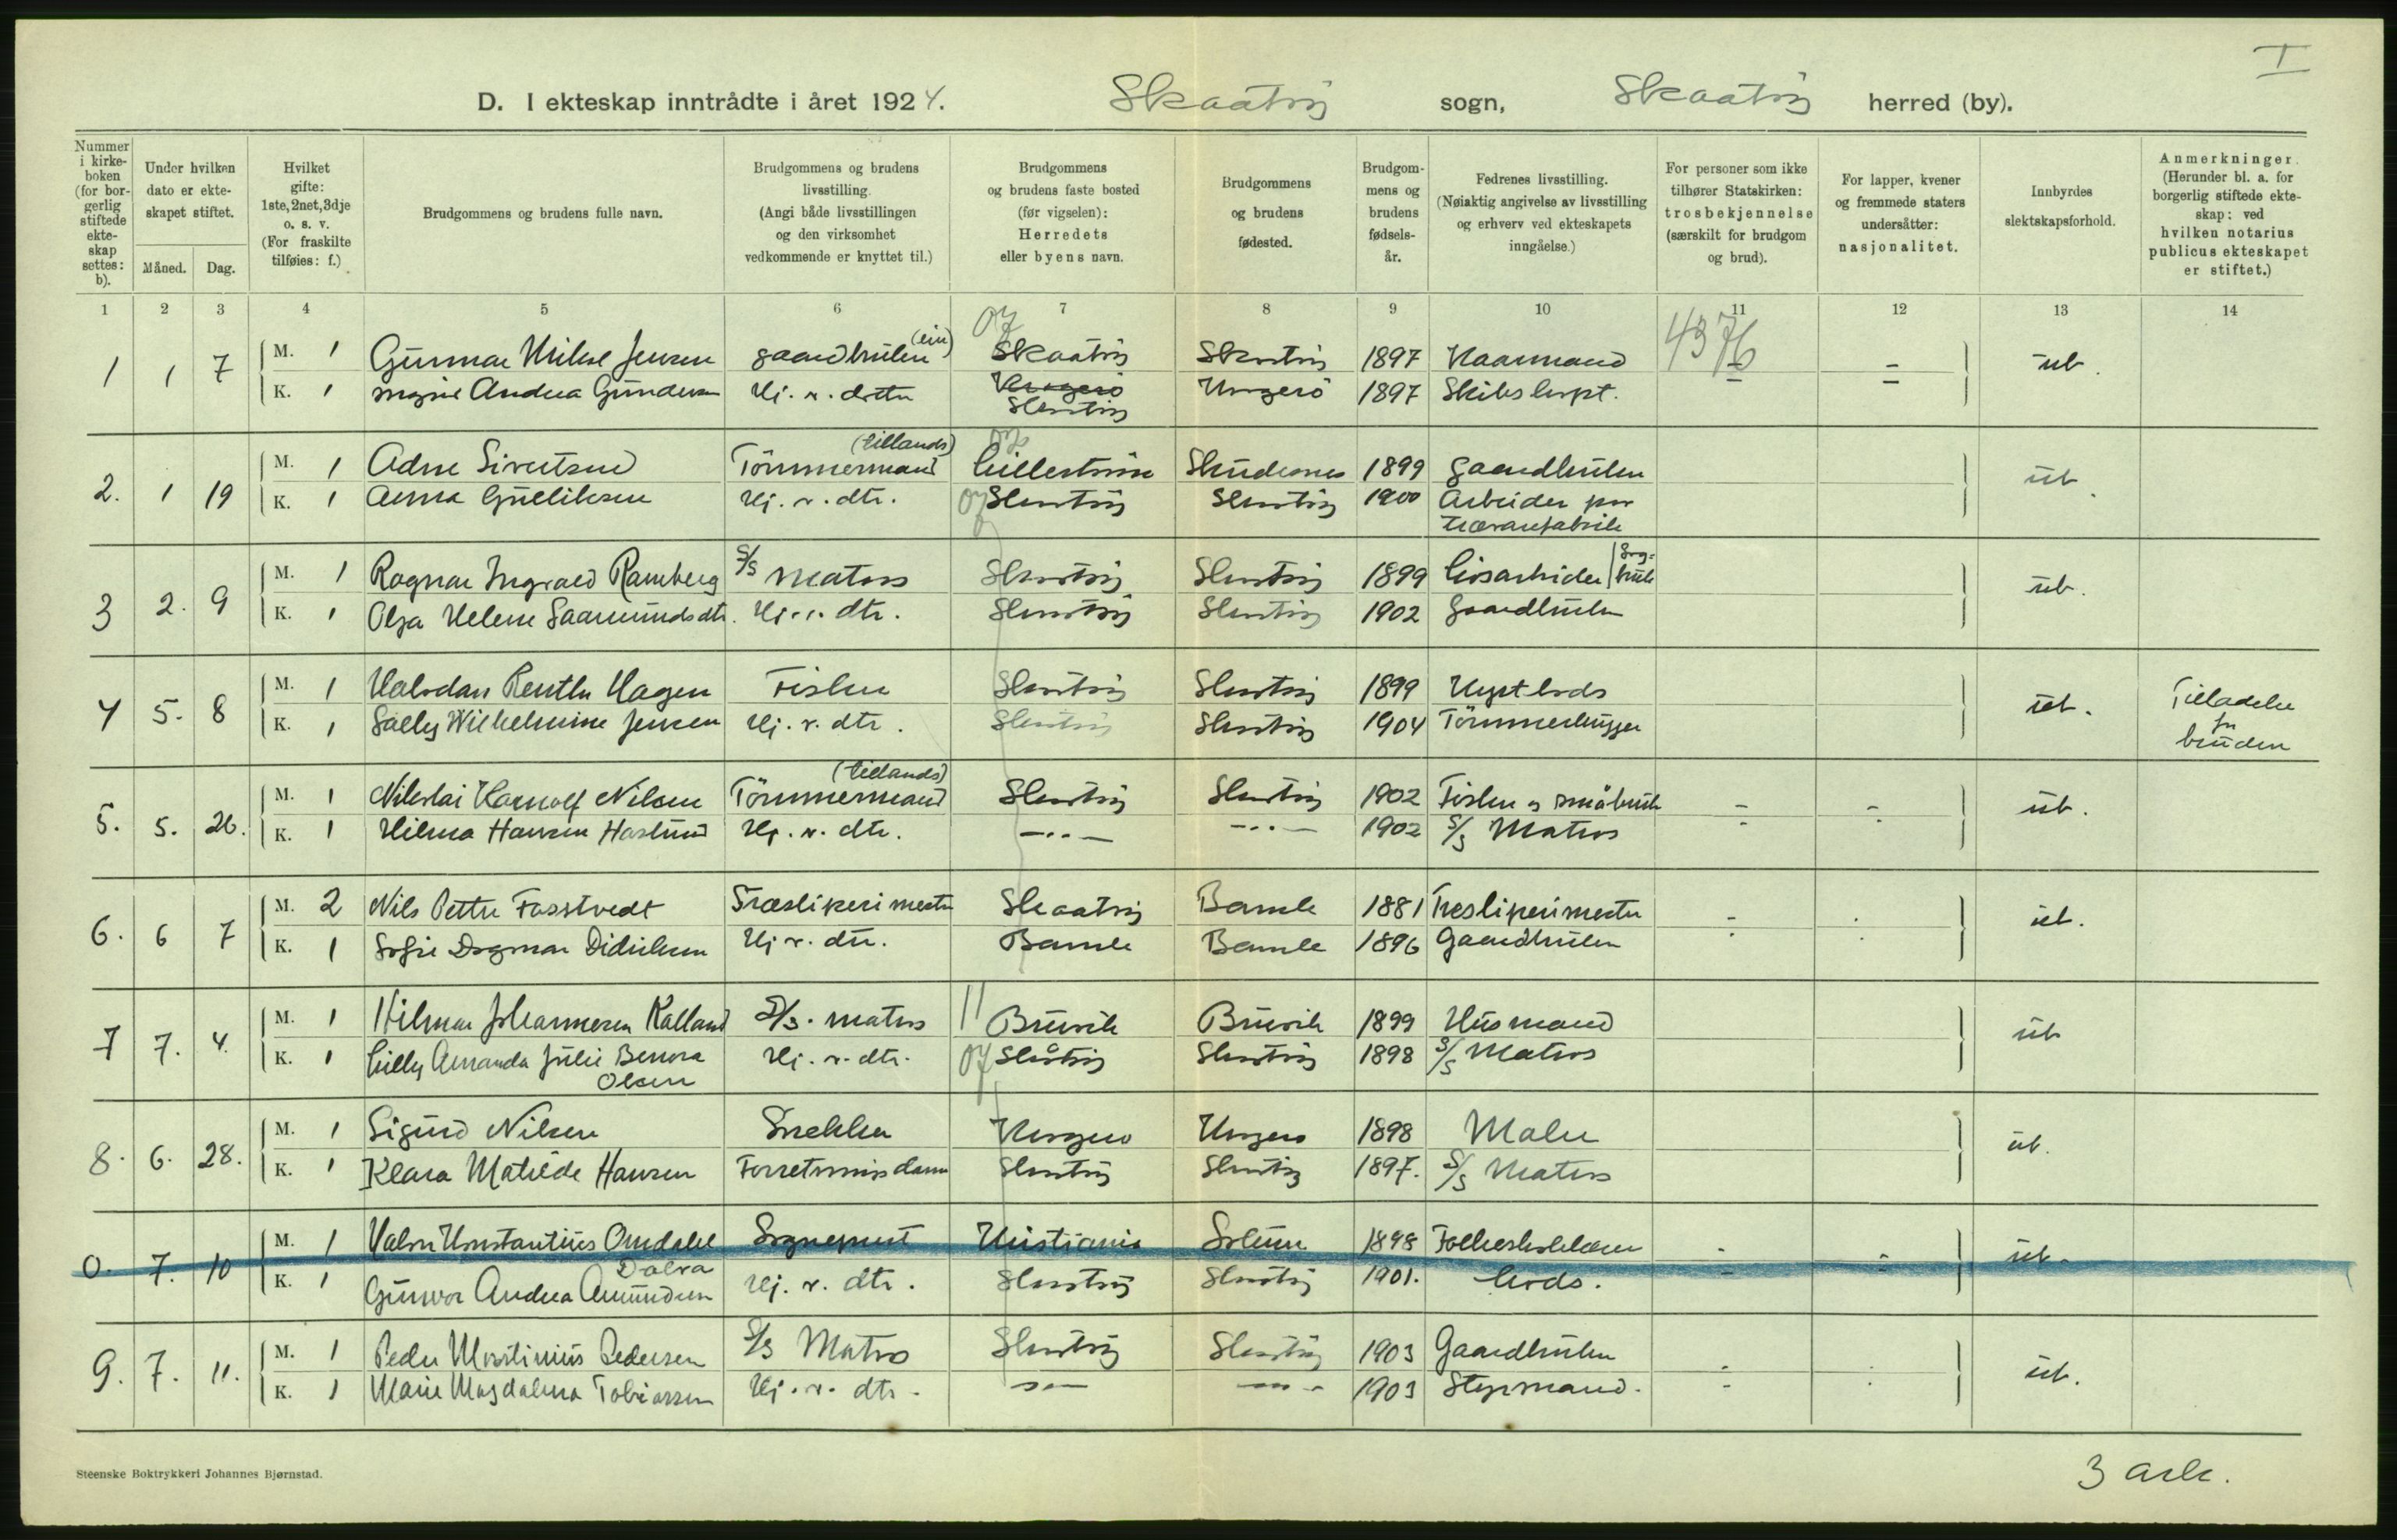 I
D. I ekteskap inntrådte i året 1924. Skaatöy sogn, Skaatöy herred (by).
Nummer i kirkeboken (for borgerlig stiftede ekteskap settes: b).
Under hvilken dato er ekteskapet stiftet.
Måned. Dag.
Hvilket gifte: 1ste, 2net, 3dje o. s. v. (For fraskilte tilføies: f.)
Brudgommens og brudens fulle navn.
Brudgommens og brudens livsstilling. (Angi både livsstillingen og den virksomhet vedkommende er knyttet til.)
Brudgommens og brudens faste bosted (før vigselen): Herredets eller byens navn.
Brudgommens og brudens fødested.
Brudgommens og brudens fødselsår.
Fedrenes livsstilling. (Nøiaktig angivelse av livsstilling og erhverv ved ekteskapets inngåelse.)
For personer som ikke tilhører Statskirken: trosbekjennelse (særskilt for brudgom og brud).
For lapper, kvener og fremmede staters undersåtter: nasjonalitet.
Innbyrdes slektskapsforhold.
Anmerkninger. (Herunder bl. a. for borgerlig stiftede ekteskap: ved hvilken notarius publicus ekteskapet er stiftet.)
1 2 3 4 5 6 7 8 9 10 11 12 13 14
07 4376
1 1 7 M. 1 Gunnar Mikal Jensen gaardbruker (ein) Skaatöy Skaatöy 1897 Haarmand - - ub.
K. 1 Andrea Gundersen Hj. v. datter Kragerö Skaatöy Kragerö 1897 Skibskapt. - -
2. 1 19 M. 1 Adne Sivertsen Tömmermand (tillands) Lilleström Skudesnes 1899 gaardbruker ub.
K. 1 Anna Gulliksen Hj. v. dtr. 07 Skaatöy Skaatöy 1900 Arbeider paa trævarefabrik
3 2. 9 M. 1 Ragnar Ingvald Ramberg S/S Matros Skaatöy Skaatöy 1899 ub.
K. 1 Olga Helene Gaamundsdtr. Hj. v. dtr. Skaatöy Skaatöy 1902 Gaardbruker
4 5. 8 M. 1 Halvdan Hagen Fisker Skaatöy Skaatöy 1899 ub. Tilladelse for bruden
K. 1 Sally Wilhelmine Jensen Hj. v. dtr. Skaatöy Skaatöy 1904 Tömmerhugger
5. 5. 26. M. 1 Nikolai Harnolf Nilsen Tömmermand (tillands) Skaatöy Skaatöy 1902 Fisker og småbruk - - ub.
K. 1 Hilma Hansen Haslund Hj. v. dtr. -..- -..- 1902 S/S Matros - -
6. 6 7 M. 2 Nils Petter Fosstvedt Træsliperimester Skaatöy Bamle 1881 Tresliperimester - - ub.
K. 1 Sofie Dagmar Didriksen Hj. v. dtr. Bamle Bamle 1896 Gaardbruker - -
7 7. 4. M. 1 Hilmar Johannesen Kalland S/S. matros 11 Bruvik Bruvik 1899 Husmand ub
K. 1 Lilly Amanda Julie Benora Olsen Hj. v. dtr. 07 Skåtöy Skaatöy 1898 S/S Matros
8. 6. 28. M. 1 Sigurd Nilsen Snekker Kragerö Kragerö 1898 Maler ub.
K. 1 Klara Matilde Hansen Forretningsdame Skaatöy Skaatöy 1897. S/S Matros
0. 7. 10 M. 1 Konstantius Omdahl Sogneprest Kristiania Solum 1898 Folkeskolelærer - - ub.
K. 1 Gunvor Andrea Dalva Amundsen Hj. v. dtr. Skaatöy Skaatöy 1901. Lods. - -
9. 7. 11. M. 1 Peder Martinius Pedersen S/S Matros Skaatöy Skaatöy 1903 Gaardbruker - - ub.
K. 1 Marie Magdalena Tobiassen Hj. v. dtr. -"- -"- 1903 Styrmand. - -
Steenske Boktrykkeri Johannes Bjørnstad.
3 ark.